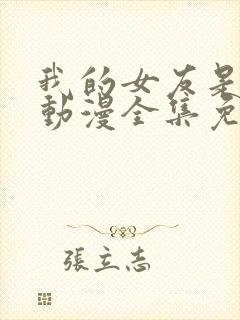 我的女友是
動漫全集免
張立志